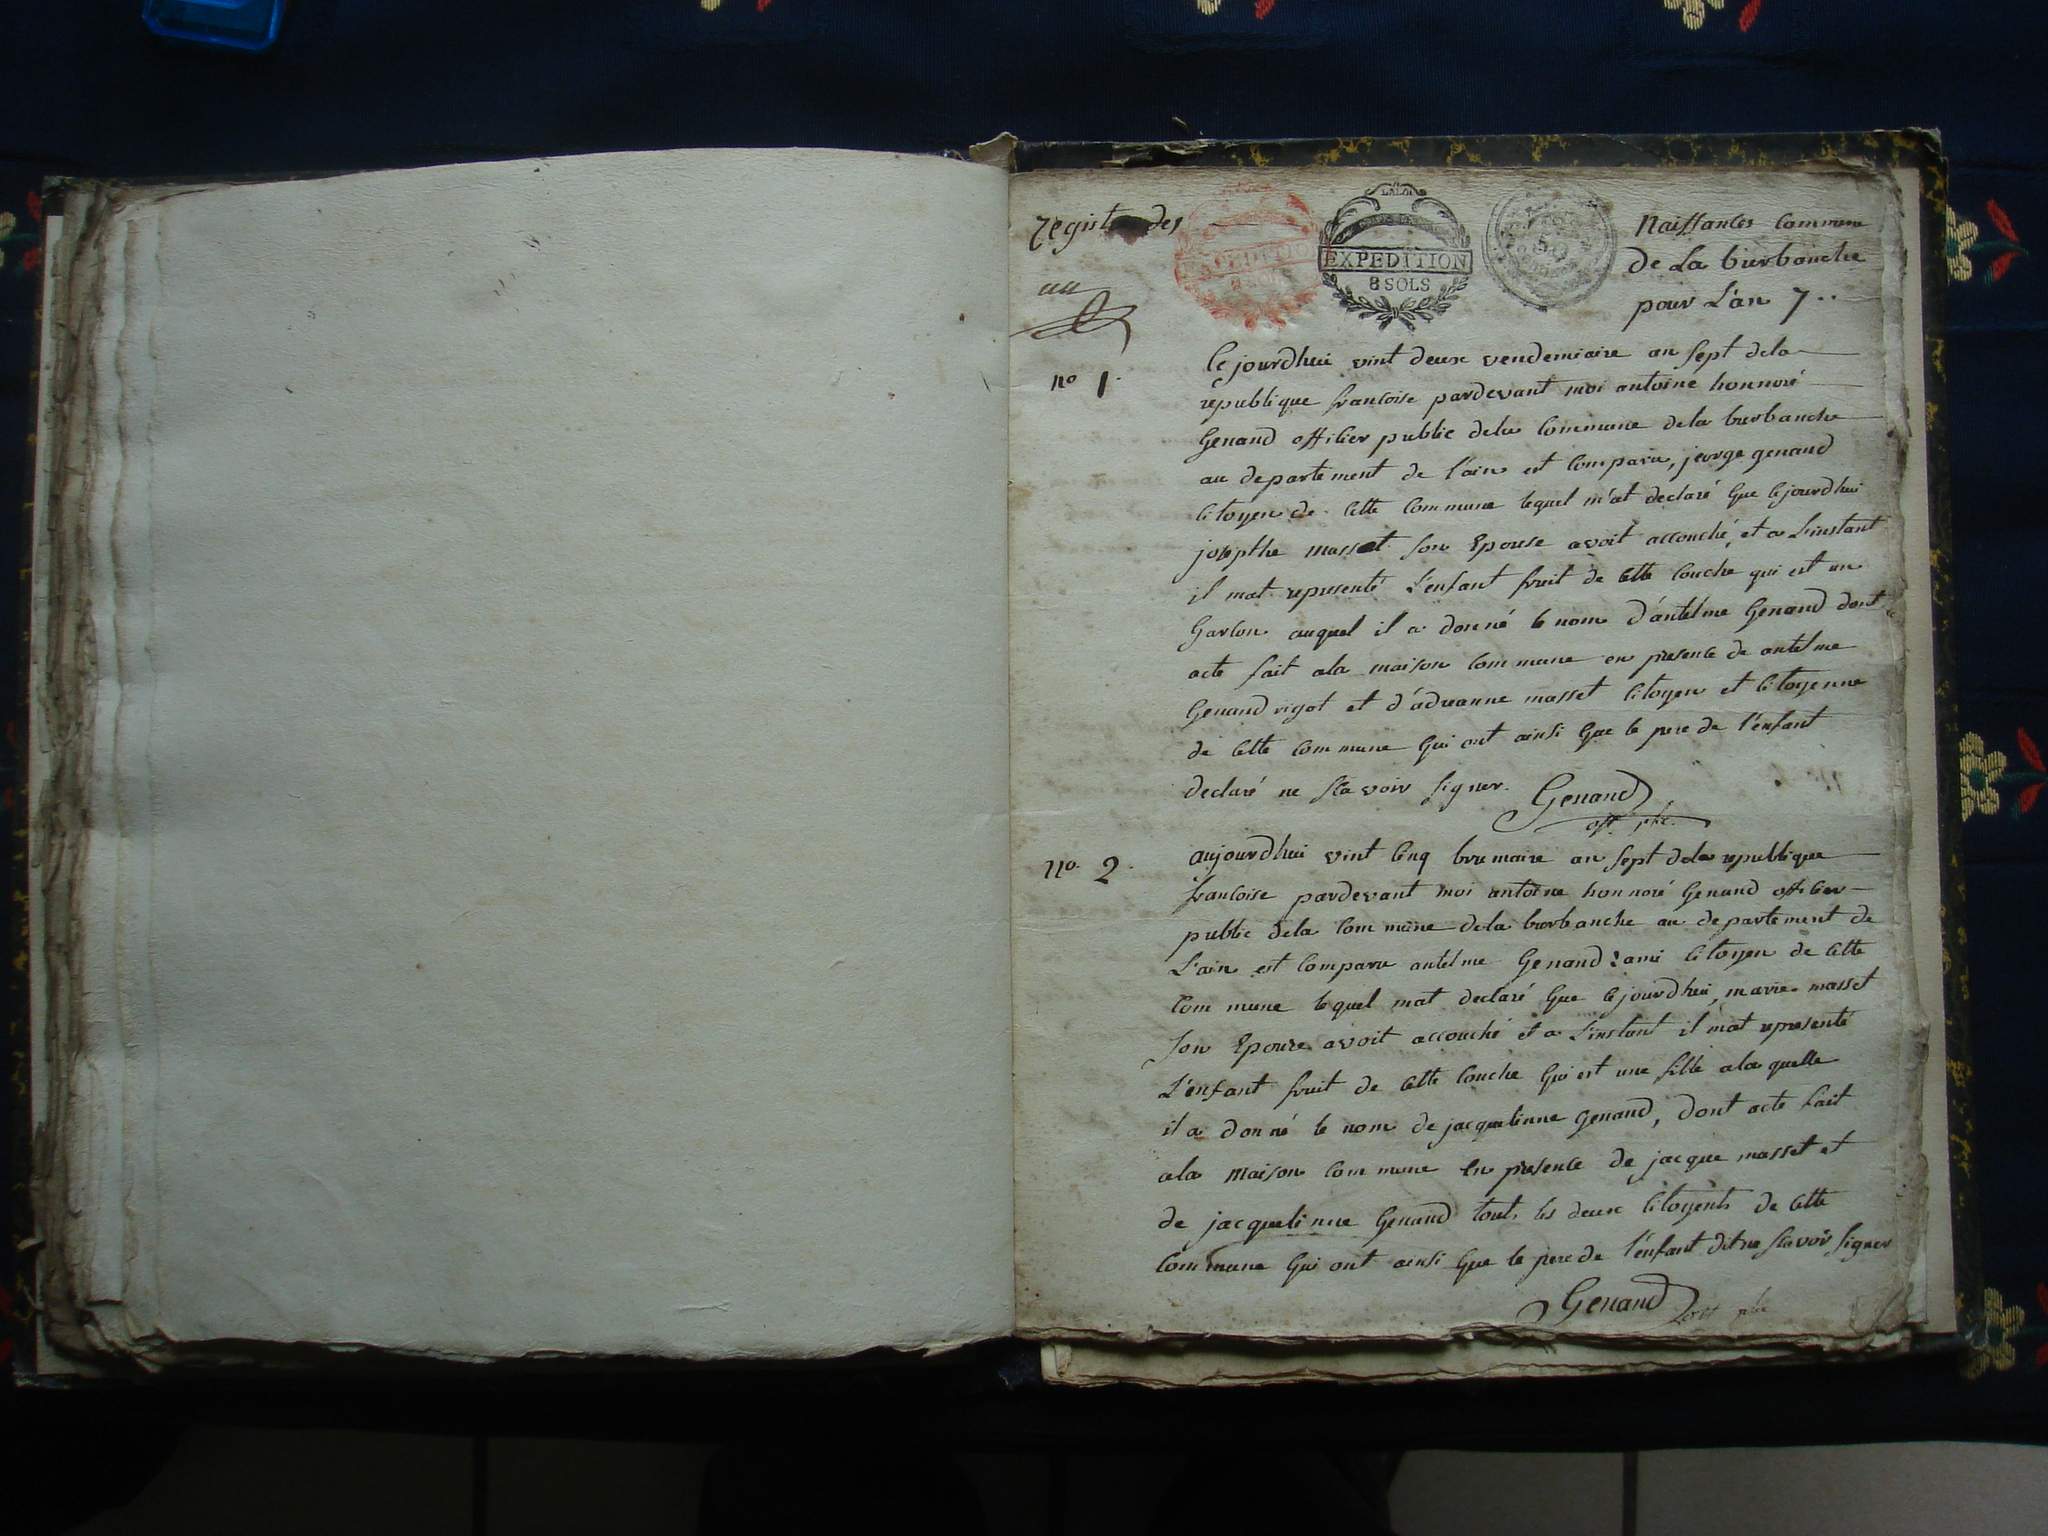 registre des
Naissances Commune
de La burbanche
pour L'an 7..
LA LOI
EXPEDITION
8 SOLS
EXPEDITION
8 SOLS
no 1.
Cejourdhui vint deux vendemiaire an sept dela
republique francoise pardevant moi antoine honnoré
Genand officier public dela Commune dela burbanche
au departement de l'ain est comparu, jeorge genand
citoyen de cette Commune lequel m'at declaré que cejourdhui
josepthe masset son Epouse avoit accouché, et a L'instant
il mat representé L'enfant fruit de cette Couche qui est un
Garcon auquel il a donné le nom d'antelme Genand dont
acte fait ala maison Commune en presence de antelme
Genand rigot et d'adreanne masset citoyen et citoyenne
de cette commune qui ont ainsi que le pere de l'enfant
declaré ne scavoir signer. Genand
off. pbc.
no. 2.
aujourdhui vint cinq brumaire an sept dela republique
francoise pardevant moi antoine honnoré Genand officier
public dela Commune dela burbanche au departement de
L'ain est comparu antelme Genand citoyen de cette
Commune lequel mat declaré que cejourdhui, marie masset
son Epouse avoit accouché et a L'instant il m'at representé
L'enfant fruit de cette Couche qui est une fille ala quelle
il a donné le nom de jacquelinne genand, dont acte fait
ala maison commune en presence de jacque masset et
de jacquelinne Genand touts les deux citoyents de cette
Commune qui ont ainsi que le pere de l'enfant dit ne scavoir signer
Genand off pbc